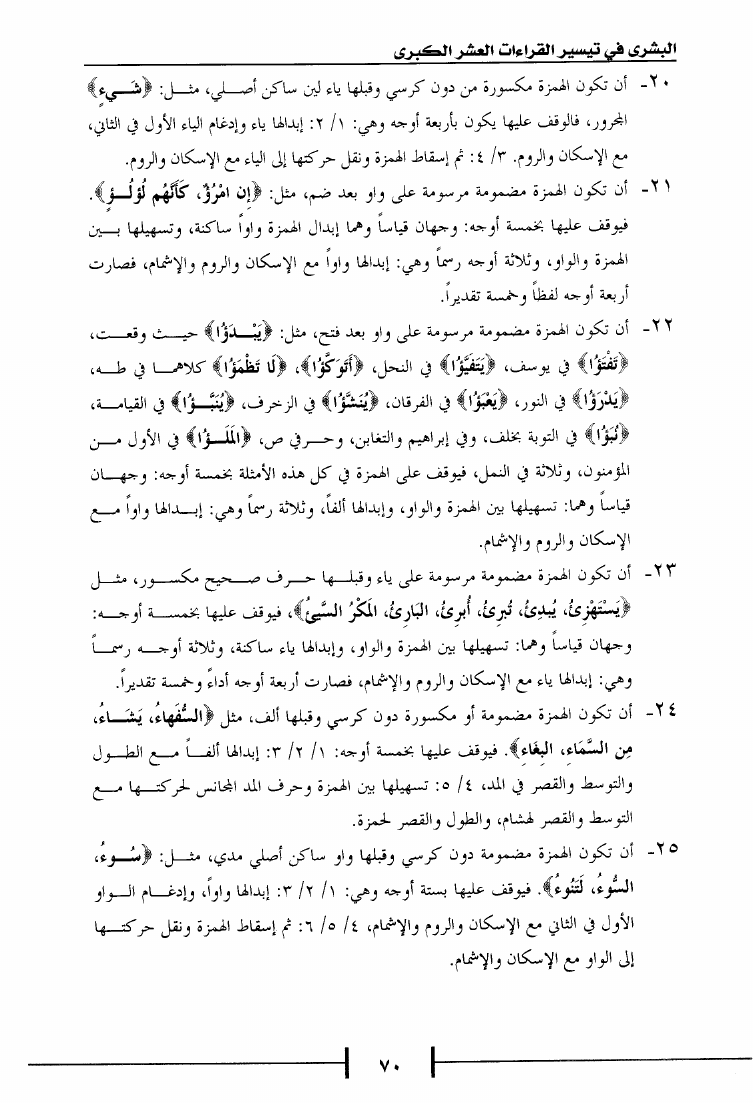 البشرى في تيسير القراءات العشر الكبرى
٢٠- أن تكون الهمزة مكسورة من دون كرسي وقبلها ياء لين ساكن أصلي، مثل: ﴿شَيءٍ﴾
المجرور، فالوقف عليها يكون بأربعة أوجه وهي: ١/ ٢: إبدالها ياء وإدغام الياء الأول في الثاني،
مع الإسكان والروم. ٣/ ٤: ثم إسقاط الهمزة ونقل حركتها إلى الياء مع الإسكان والروم.
٢١- أن تكون الهمزة مضمومة مرسومة على واو بعد ضم، مثل: ﴿إِن امْرُؤٌ، كَأَنَّهُم لُؤْلُؤٌ﴾.
فيوقف عليها بخمسة أوجه: وجهان قياساً وهما إبدال الهمزة واواً ساكنة، وتسهيلها بين
الهمزة والواو، وثلاثة أوجه رسماً وهي: إبدالها واواً مع الإسكان والروم والإشمام، فصارت
أربعة أوجه لفظاً وخمسة تقديراً.
٢٢- أن تكون الهمزة مضمومة مرسومة على واو بعد فتح، مثل: ﴿يَبْدَؤُا﴾ حيث وقعت،
﴿تَفْتَؤُا﴾ في يوسف، ﴿يَتَفَيَّؤُا﴾ في النحل، ﴿أَتَوَكَّؤُا﴾، ﴿لَا تَظْمَؤُا﴾ كلاهما في طه،
﴿يَدْرَؤُا﴾ في النور، ﴿يَعْبَؤُا﴾ في الفرقان، ﴿يُنَشَّؤُا﴾ في الزخرف، ﴿يُنَبَّؤُا﴾ في القيامة،
﴿نَبَؤُا﴾ في التوبة بخلف، وفي إبراهيم والتغابن، وحرفي ص، ﴿المَلَؤُا﴾ في الأول من
المؤمنون، وثلاثة في النمل، فيوقف على الهمزة في كل هذه الأمثلة بخمسة أوجه: وجهان
قياساً وهما: تسهيلها بين الهمزة والواو، وإبدالها ألفاً، وثلاثة رسماً وهي: إبدالها واواً مع
الإسكان والروم والإشمام.
٢٣- أن تكون الهمزة مضمومة مرسومة على ياء وقبلها حرف صحيح مكسور، مثل
﴿يَسْتَهْزِئُ، يُبدِئُ، تُبرِئُ، أُبرِئُ، البَارِئُ، المَكْرُ السَّيِّئُ﴾، فيوقف عليها بخمسة أوجه:
وجهان قياساً وهما: تسهيلها بين الهمزة والواو، وإبدالها ياء ساكنة، وثلاثة أوجه رسماً
وهي: إبدالها ياء مع الإسكان والروم والإشمام، فصارت أربعة أوجه أداءً وخمسة تقديراً.
٢٤- أن تكون الهمزة مضمومة أو مكسورة دون كرسي وقبلها ألف، مثل ﴿السُّفَهاءُ، يَشَاءُ،
مِن السَّمَاءِ، البِغَاءِ﴾. فيوقف عليها بخمسة أوجه: ١/ ٢/ ٣: إبدالها ألفاً مع الطول
والتوسط والقصر في المد، ٤/ ٥: تسهيلها بين الهمزة وحرف المد المجانس لحركتها مع
التوسط والقصر لهشام، والطول والقصر لحمزة.
٢٥- أن تكون الهمزة مضمومة دون كرسي وقبلها واو ساكن أصلي مدي، مثل: ﴿سُوءُ،
السُّوءُ، لَتَنُوءُ﴾. فيوقف عليها بستة أوجه وهي: ١/ ٢/ ٣: إبدالها واواً، وإدغام الواو
الأول في الثاني مع الإسكان والروم والإشمام، ٤/ ٥/ ٦: ثم إسقاط الهمزة ونقل حركتها
إلى الواو مع الإسكان والإشمام.
٧٠